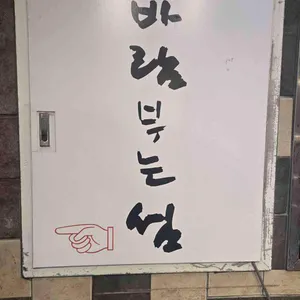 바람부는섬